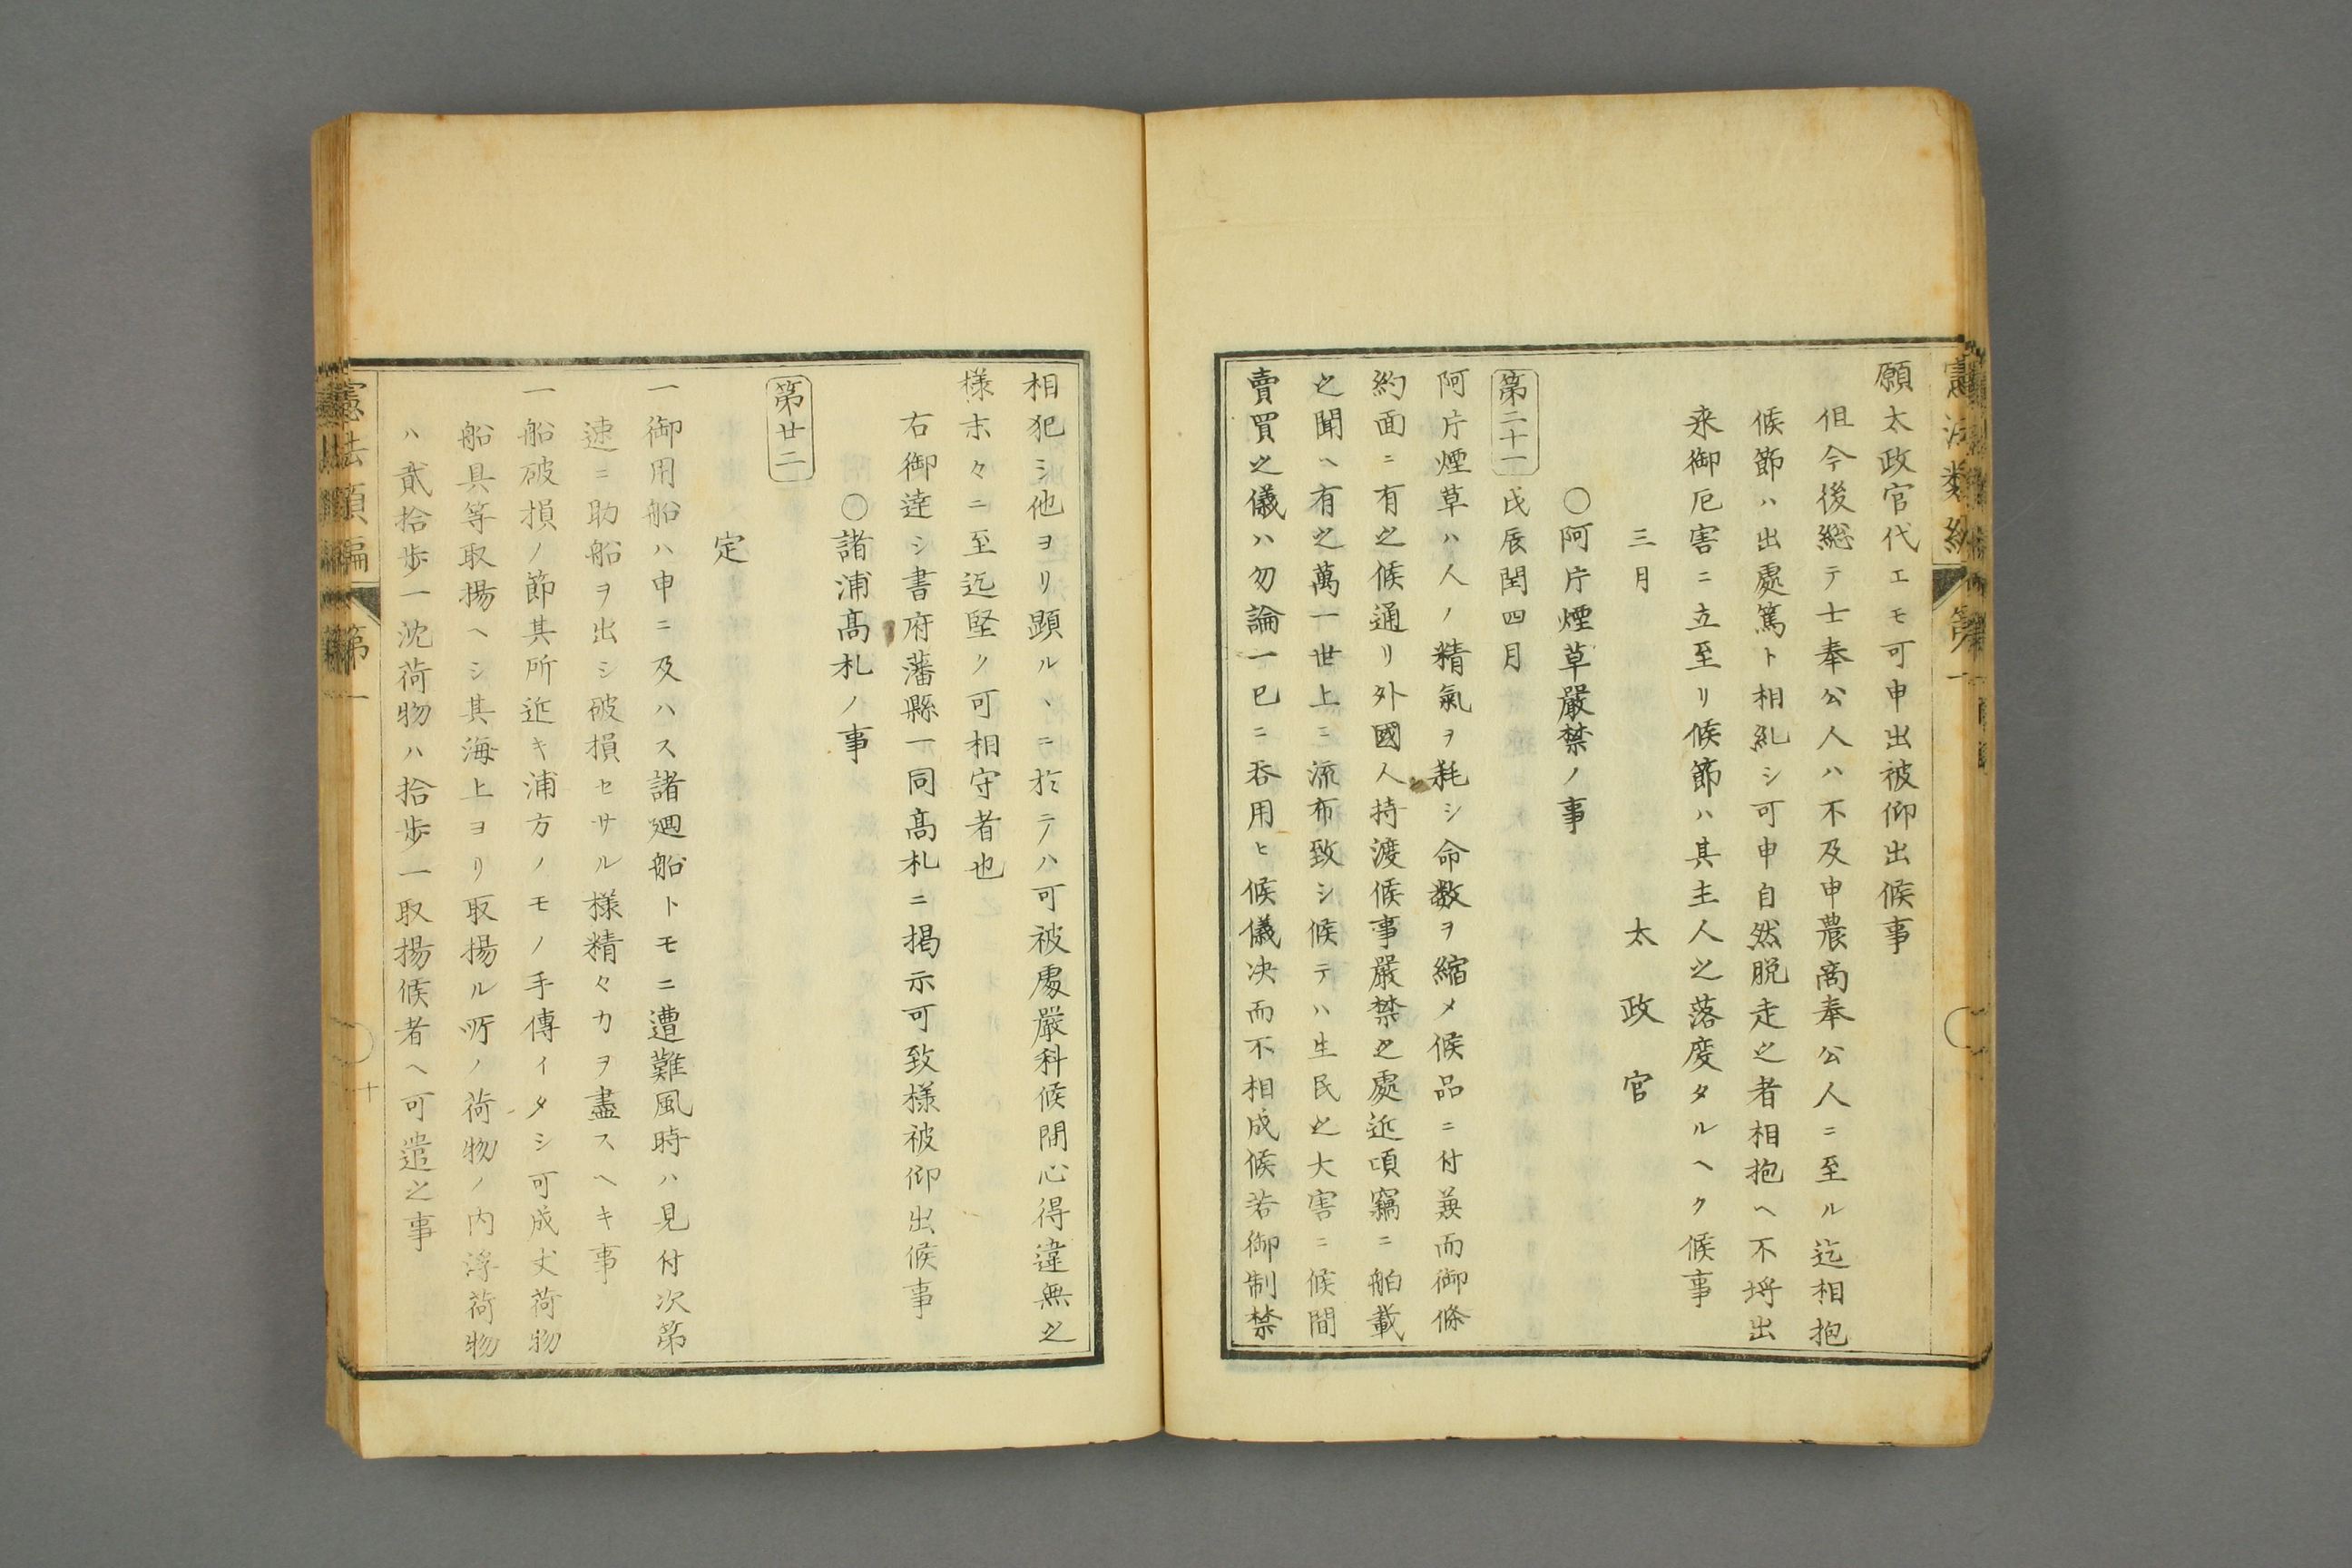 憲法類編 第一
願太政官代エモ可申出被仰出候事
但今後総テ士奉公人ハ不及申農商奉公人ニ至ル迄相抱
候節ハ出處篤ト相糺シ可申自然脱走之者相抱ヘ不埒出
来御厄害ニ立至リ候節ハ其主人之落度タルヘク候事
三月 太政官
○阿片煙草嚴禁ノ事
第二十一 戊辰閏四月
阿片煙草ハ人ノ精氣ヲ耗シ命数ヲ縮メ候品ニ付兼而御條
約面ニ有之候通リ外國人持渡候事嚴禁之處近頃竊ニ舶載
之聞ヘ有之萬一世上ニ流布致シ候テハ生民之大害ニ候間
賣買之儀ハ勿論一已ニ呑用ヒ候儀决而不相成候若御制禁
相犯シ他ヨリ顕ルヽニ於テハ可被處嚴科候間心得違無之
様末々ニ至迄堅ク可相守者也
右御達シ書府藩縣一同高札ニ掲示可致様被仰出候事
○諸浦高札ノ事
第廿二
定
一御用船ハ申ニ及ハス諸廻船トモニ遭難風時ハ見付次第
速ニ助船ヲ出シ破損セサル様精々力ヲ盡スヘキ事
一船破損ノ節其所近キ浦方ノモノ手傳イタシ可成丈荷物
船具等取揚ヘシ其海上ヨリ取揚ル所ノ荷物ノ内浮荷物
ハ貳拾歩一沈荷物ハ拾歩一取揚候者ヘ可遣之事
憲法類編 第一 十